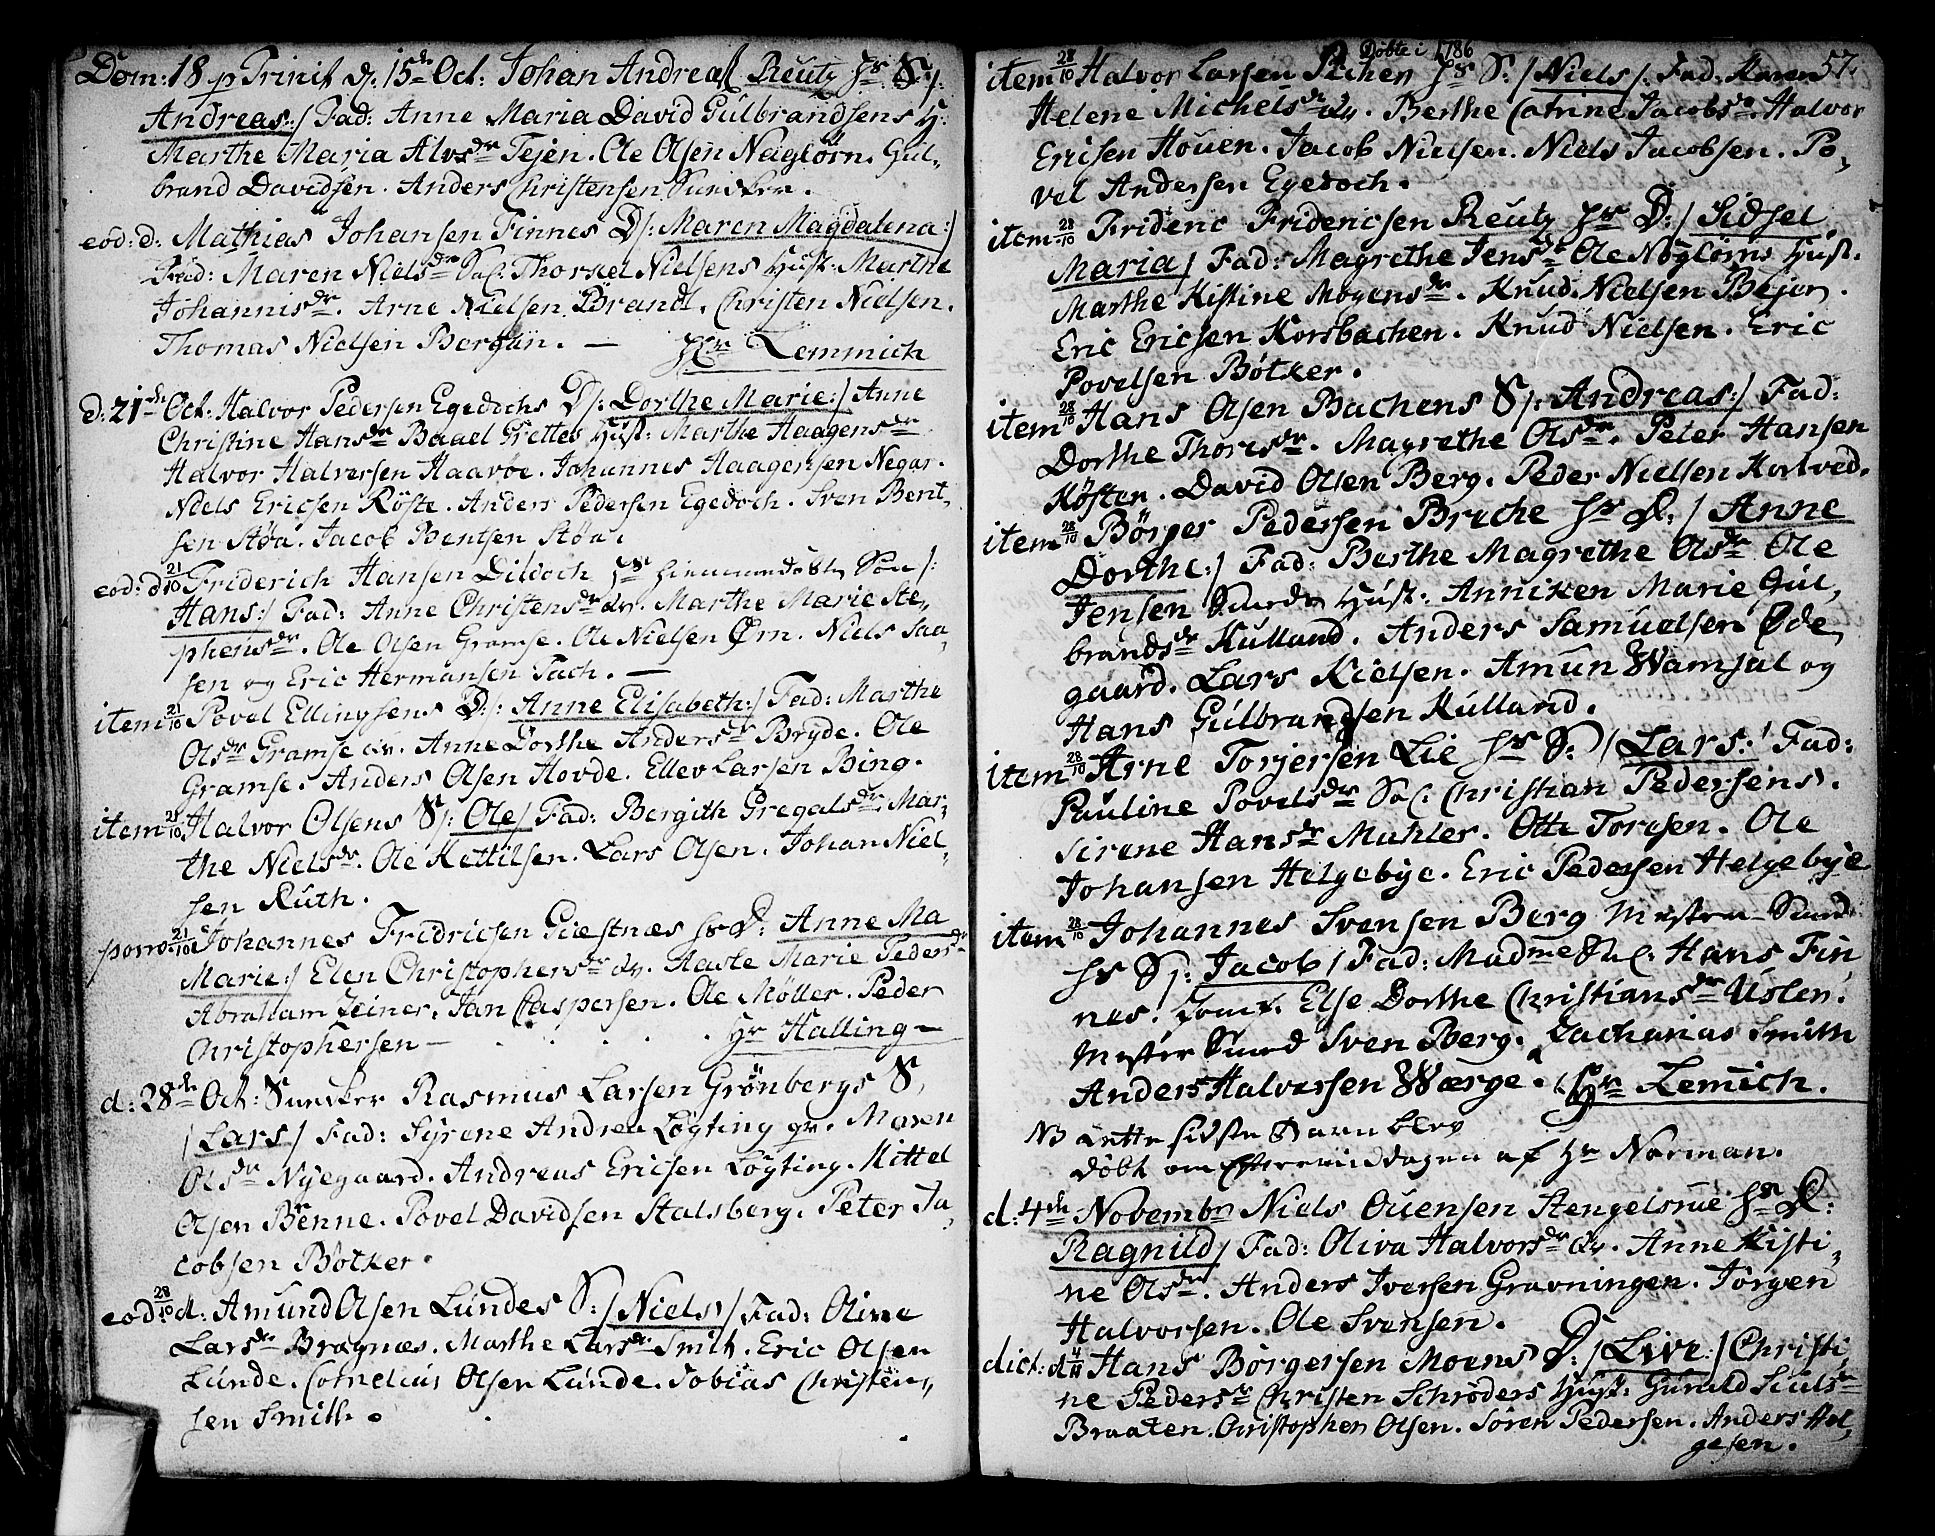 Dom: 18 p Trinit d: 15de Oct: Johan Andreas Reutz hs S:/:
Andreas:/ Fad: Anne Maria David Gulbrandsens H:
Marthe Maria Alvsdr Tejen. Ole Olsen Nøglörn. Gul-
brand Davidsen. Anders Christensen Snecker.
eod: d: Mathias Johansen Finnes D/: Maren Magdalena:/
Fad: Maren Nielsdr Sal. Thorkel Nielsens Hust: Marthe
Johannisdr. Arne Nielsen Brandt. Christen Nielsen.
Thomas Nielsen Bergan. — Hr Lemmich
d: 21de Oct. Halvor Pedersen Egedochs D/: Dorthe Marie:/ Anne
Christine Hansdr Baael Gretters Hust: Marthe Haagensdr
Halvor Halversen Haavøe. Johannes Haagensen Negar.
Niels Ericsen Röste. Anders Pedersen Egedoch. Sven Bent-
sen Støa. Jacob Bentsen Støa.
eod: d 21/10 Friderich Hansen Dildoch hs hiemmedøbte Søn /:
Hans:/ Fad: Anne Christensdr ib. Marthe Marie Ste-
phensdr. Ole Olsen Gramse. Ole Nielsen Ørn. Niels Saa-
sen og Eric Hermansen Tach. —
item 21/10 Povel Ellingsens D:/: Anne Elisabeth:/ Fad: Marthe
Olsdr Gramse ib. Anne Dorthe Andersdr Bryde. Ole
Gramse. Anders Olsen Hovde. Ellev Larsen Bing.
item 21/10 Halvor Olsens S/: Ole/ Fad: Bergith Gregalsdr Mar-
the Nielsdr. Ole Kettilsen. Lars Olsen. Johan Niel-
sen Ruth.
porro 21/10 Johannes Fridricsen Giestnæs hs D: Anne Ma
Marie:/ Elen Christophersdr ib. Aaste Marie Pedersdr
Abraham Zeiner. Jan Caspersen. Ole Möller. Peder
Christophersen — Hr Halling —
d: 28de Oct: Snecker Rasmus Larsen Grönbergs S.
/Lars/ Fad: Syrene Andrea Løgting gr. Maren
Olsdr Nyegaard. Andreas Ericsen Løgting. Kittel
Olsen Benne. Povel Davidsen Stalsberg. Peter Ja-
cobsen Bötker.
eod: 28/10 d: Amund Olsen Lundes S:/ Niels/ Fad: Oline
Larsdr Bragnæs. Marthe Larsdr Smit. Eric Olsen
Lunde. Cornelius Olsen Lunde. Tobias Christen-
sen Smith.
Döbte i 1786
57.
item 28/10 Halvor Larsen hs S:/ Niels/: Fad: Karen
Helene Michelsdr ib. Berthe Catrine Jacobsdr. Halvor
Ericsen Houen. Jacob Nielsen. Niels Jacobsen. Po-
vel Andersen Egedoch.
item 28/10 Frideric Fridericsen Reutz hs D:/ Sidsel
Maria/ Fad: Magrethe Jensdr Ole Nøglörns Hust.
Marthe Kistine Mogensdr. Knud Nielsen Bejer.
Eric Ericsen Korsbachen. Knud Nielsen. Eric
Povelsen Bötker.
item 28/10 Hans Olsen Bachens S/: Andreas:/ Fad:
Dorthe Thoresdr. Magrethe Olsdr. Peter Hansen
Kösten. David Olsen Berg. Peder Nielsen Kortved.
item 28/10 Börger Pedersen Breche hs D. / Anne
Dorthe:/ Fad: Berthe Magrethe Olsdr Ole
Jensen Smeds Hust. Anniken Marie Gul-
brandsdr Kulland. Anders Samuelsen Øde-
gaard. Lars Kielsen. Amun Wamsal og
Hans Gulbrandsen Kulland.
item 28/10 Arne Torjersen Lie hs S: /Lars:/ Fad:
Pauline Povelsdr Sal: Christian Pedersens.
Sirene Hansdr Muhler. Otte Toresen. Ole
Johansen Helgebye. Eric Pedersen Helgebye
item 28/10 Johannes Svensen Berg Mester Smed
hs S/: Jacob/ Fad: Madme Sal: Hans Fin-
nes. Jomf. Else Dorthe Christiansdr Uslen.
Mester Smed Sven Berg. Zacharias Smith
Anders Halversen Wærge. Hr Lemich.
NB dette sidste Barn blev
döbt om Eftermiddagen af Hr Norman.
d: 4de Novembr Niels Ouensen Stengelsrue hs D:
Ragnild/ Fad: Oliva Halvorsdr ib. Anne Kisti-
ne Olsdr. Anders Iversen Gravningen. Jörgen
Halvorsen. Ole Svensen.
dict: d 4/11 Hans Börgersen Moens D:/ Live:/ Christi-
ne Pedersdr Christen Schröders Hust: Gunild Siulsdr
Braaten. Christopher Olsen. Sören Pedersen. Anders Hel-
gesen.